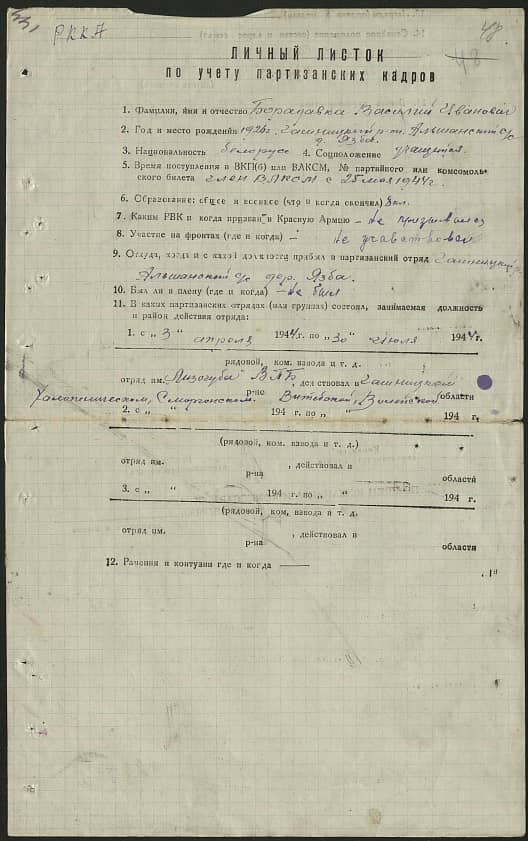 РККА
48.
48
ЛИЧНЫЙ ЛИСТОК
по учету партизанских кадров
1. Фамилия, имя и отчество Борадавка Василий Иванович
2. Год и место рождения 1926г. Чашницкий р-н. Альшанский с/с
д. Язба.
3. Национальность белорус 4. Соцположение учащийся.
5. Время поступления в ВКП(б) или ВЛКСМ, № партийного или комсомоль-
ского билета член ВЛКСМ с 25 мая 1944г.
6. Образование: общее и военное (что и когда окончил) 8кл.
7. Каким РВК и когда призван в Красную Армию – не призывался
8. Участие на фронтах (где и когда) – не участвовал
9. Откуда, когда и с какой должности прибыл в партизанский отряд Чашницкий
Альшанский с/с дер. Язба.
10. Был ли в плену (где и когда) – не был
11. В каких партизанских отрядах (или группах) состоял, занимаемая должность
и район действия отряда:
1. с „ 3 “ апреля 1944 г. по „ 30 “ июля 1944 г.
рядовой, ком. взвода и т. д.
отряд им. Лизогуба ВПБ , действовал в Чашницком
р-не области
Холопеническом, Сморгонском. Витебской, Вилейской
2. с „ “ 194 г. по „ “ 194 г.
(рядовой, ком. взвода и т. д.)
отряд им. , действовал в
р-на области
3. с „ “ 194 г. по „ “ 194 г.
(рядовой, ком, взвода и т. д.
отряд им. , действовал в
р-на области
12. Ранения и контузии где и когда —